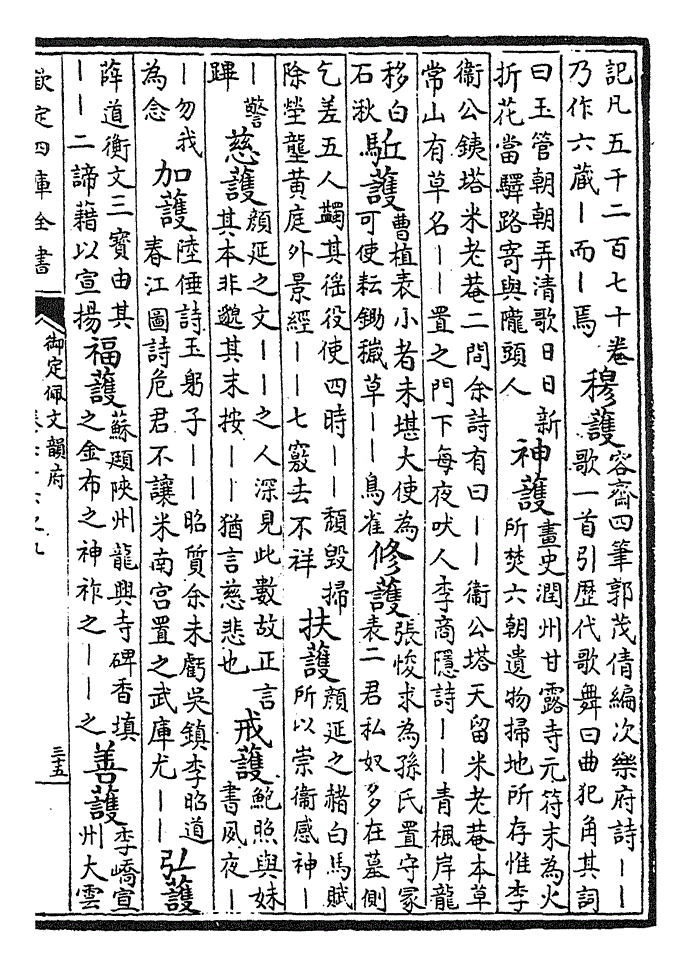 記凡五千二百七十卷
乃作六蔵｜而｜焉
穆護
容齋四筆郭茂倩編次樂府詩｜｜
歌一首引歴代歌舞曰曲犯角其詞
曰玉管朝朝弄清歌日日新
折花當驛路寄與隴頭人
神護
畫史潤州甘露寺元符末為火
所焚六朝遺物掃地所存惟李
衞公鐡塔米老菴二間余詩有曰｜｜衞公塔天留米老菴本草
常山有草名｜｜置之門下每夜吠人李商隱詩｜｜青楓岸龍
移白
石秋
駈護
曹植表小者未堪大使為
可使耘鋤穢草｜｜鳥雀
修護
張悛求為孫氏置守冢
表二君私奴多在墓側
乞差五人蠲其徭役使四時｜｜頹毀掃
除塋壟黄庭外景經｜｜七竅去不祥
扶護
顔延之赭白馬賦
所以崇衞感神｜
｜警
蹕
慈護
顔延之文｜｜之人深見此數故正言
其本非邈其末按｜｜猶言慈悲也
戒護
鮑照與妹
書夙夜｜
｜勿我
為念
加護
陸倕詩玉躬子｜｜昭質余未虧吳鎮李昭道
春江圖詩危君不讓米南宮置之武庫尤｜｜
弘護
薛道衡文三寶由其
｜｜二諦藉以宣揚
福護
蘇頲陜州龍興寺碑香填
之金布之神祚之｜｜之
善護
李嶠宣
州大雲
欽定四庫全書
御定佩文韻府
三五